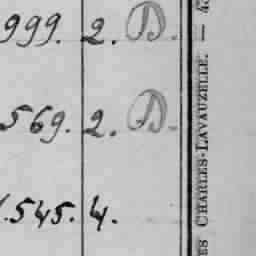 999. 2. D.
569. 2. D.
.545. 4.
ES CHARLES-LAVAUZELLE. — 43